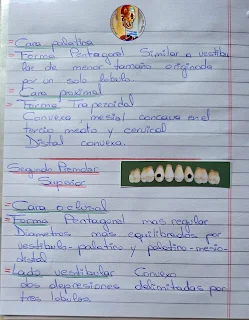 = Cara palatina
= Forma Pentagonal Similar a vestibu
lar de menor tamaño originada
por un solo lobulo.
= Cara proximal
= Forma Trapezoidal
Convexa, mesial concava en el
tercio medio y cervical
Distal convexa.
Segundo Premolar
Superior
= Cara oclusal
= Forma Pentagonal mas regular
Diametros mas equilibrados por
vestibulo-palatico y palatico-mesio-
distal
= Lado vestibular Convexo
dos depresiones delimitadas por
tres lobulos